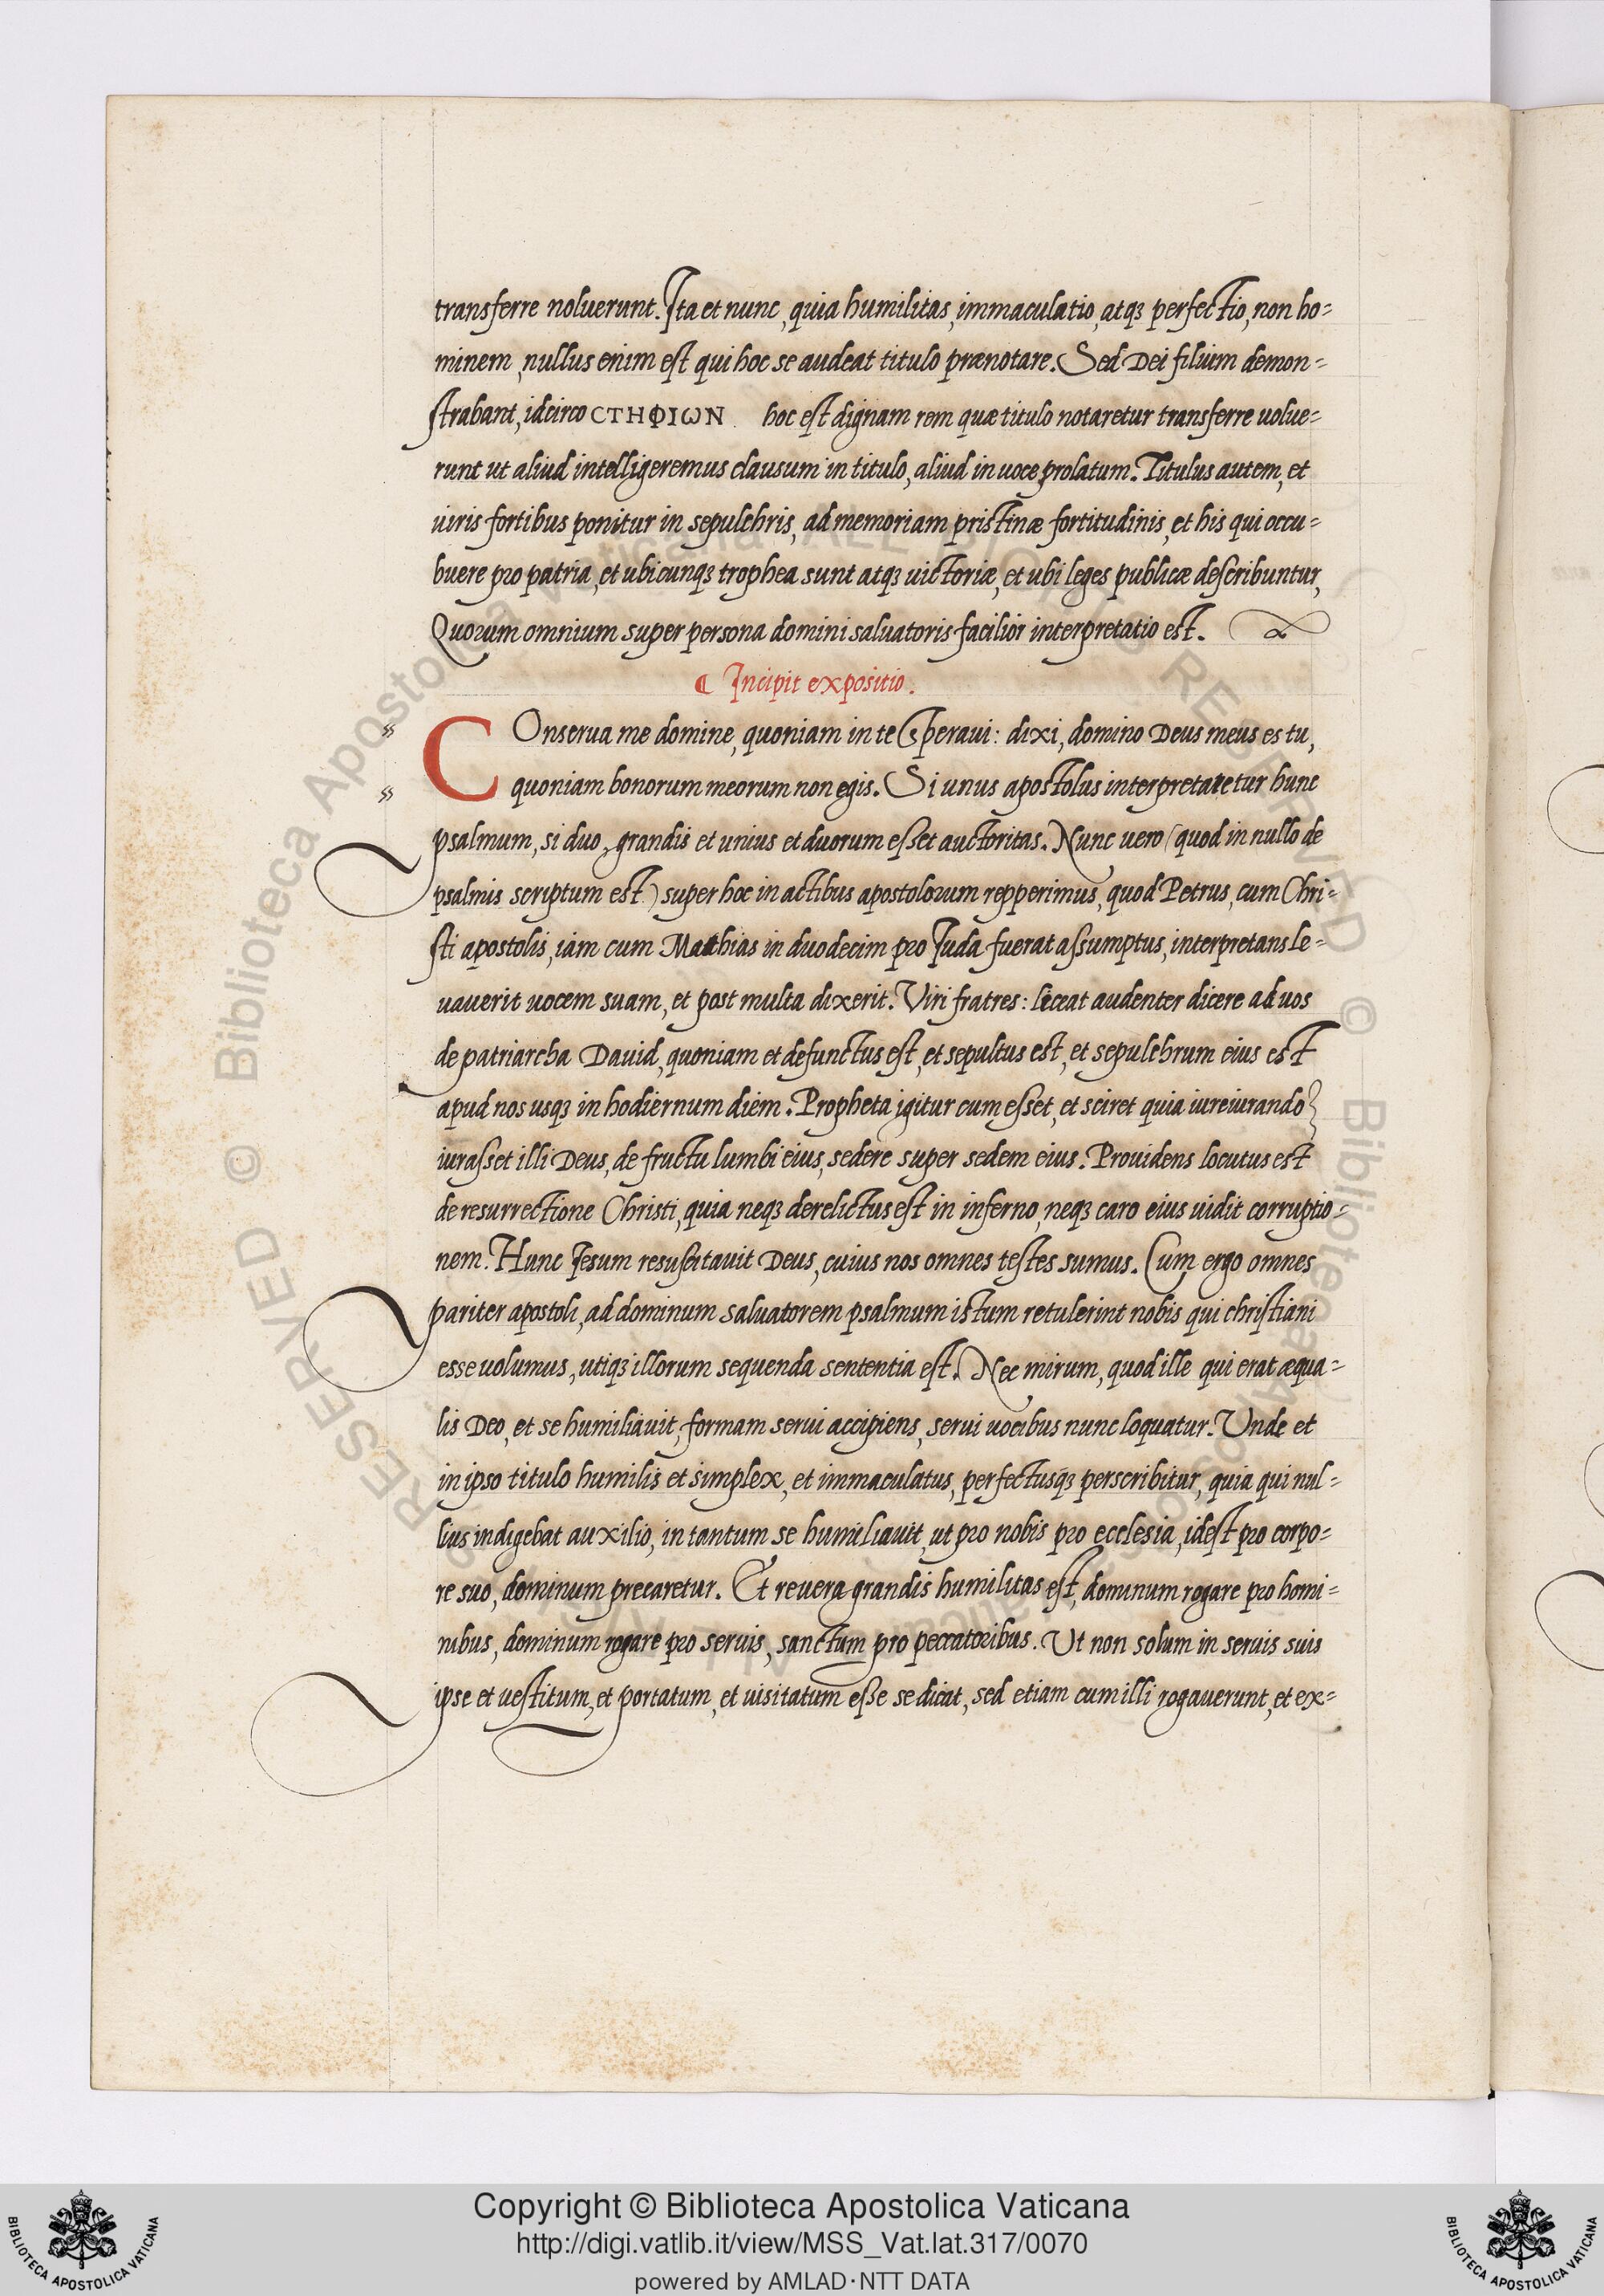 transferre noluerunt. Ita et nunc, quia humilitas, immaculatio, atqꝫ perfectio, non ho-
minem, nullus enim est qui hoc se audeat titulo prænotare. Sed Dei filium demon-
strabant, idcirco CΤΗΦΙωΝ hoc est dignam rem quæ titulo notaretur transferre uolue-
runt ut aliud intelligeremus clausum in titulo, aliud in uoce prolatum. Titulus autem, et
uiris fortibus ponitur in sepulchris, ad memoriam pristinæ fortitudinis, et his qui occu-
buere pro patria, et ubicunqꝫ trophea sunt atqꝫ uictoriæ, et ubi leges publicæ describuntur,
Quorum omnium super persona domini saluatoris facilior interpretatio est.
¶ Incipit expositio.
COnserua me domine, quoniam in te speraui: dixi, domino Deus meus es tu,
quoniam bonorum meorum non egis. Si unus apostolus interpretaretur hunc
psalmum, si duo, grandis et unius et duorum esset auctoritas. Nunc uero (quod in nullo de
psalmis scriptum est) super hoc in actibus apostolorum repperimus, quod Petrus, cum Chri-
sti apostolis, iam cum Matthias in duodecim pro Iuda fuerat assumptus, interpretans le-
uauerit uocem suam, et post multa dixerit. Viri fratres: liceat audenter dicere ad uos
de patriarcha Dauid, quoniam et defunctus est, et sepultus est, et sepulchrum eius est
apud nos usqꝫ in hodiernum diem. Propheta igitur cum esset, et sciret quia iureiurando
iurasset illi Deus, de fructu lumbi eius, sedere super sedem eius. Prouidens locutus est
de resurrectione Christi, quia neqꝫ derelictus est in inferno, neqꝫ caro eius uidit corruptio-
nem. Hunc Iesum resuscitauit Deus, cuius nos omnes testes sumus. Cum ergo omnes
pariter apostoli, ad dominum saluatorem psalmum istum retulerint nobis qui christiani
esse uolumus, utiqꝫ illorum sequenda sententia est. Nec mirum, quod ille qui erat æqua-
lis Deo, et se humiliauit, formam serui accipiens, serui uocibus nunc loquatur. Unde et
in ipso titulo humilis et simplex, et immaculatus, perfectusqꝫ perscribitur, quia qui nul-
lius indigebat auxilio, in tantum se humiliauit, ut pro nobis pro ecclesia, idest pro corpo-
re suo, dominum precaretur. Et reuera grandis humilitas est, dominum rogare pro homi-
nibus, dominum rogare pro seruis, sanctum pro peccatoribus. Ut non solum in seruis suis
ipse et uestitum, et portatum, et uisitatum esse se dicat, sed etiam cum illi rogauerunt, et ex-
Copyright © Biblioteca Apostolica Vaticana
http://digi.vatlib.it/view/MSS_Vat.lat.317/0070
powered by AMLAD·NTT DATA
BIBLIOTECA APOSTOLICA VATICANA
BIBLIOTECA APOSTOLICA VATICANA